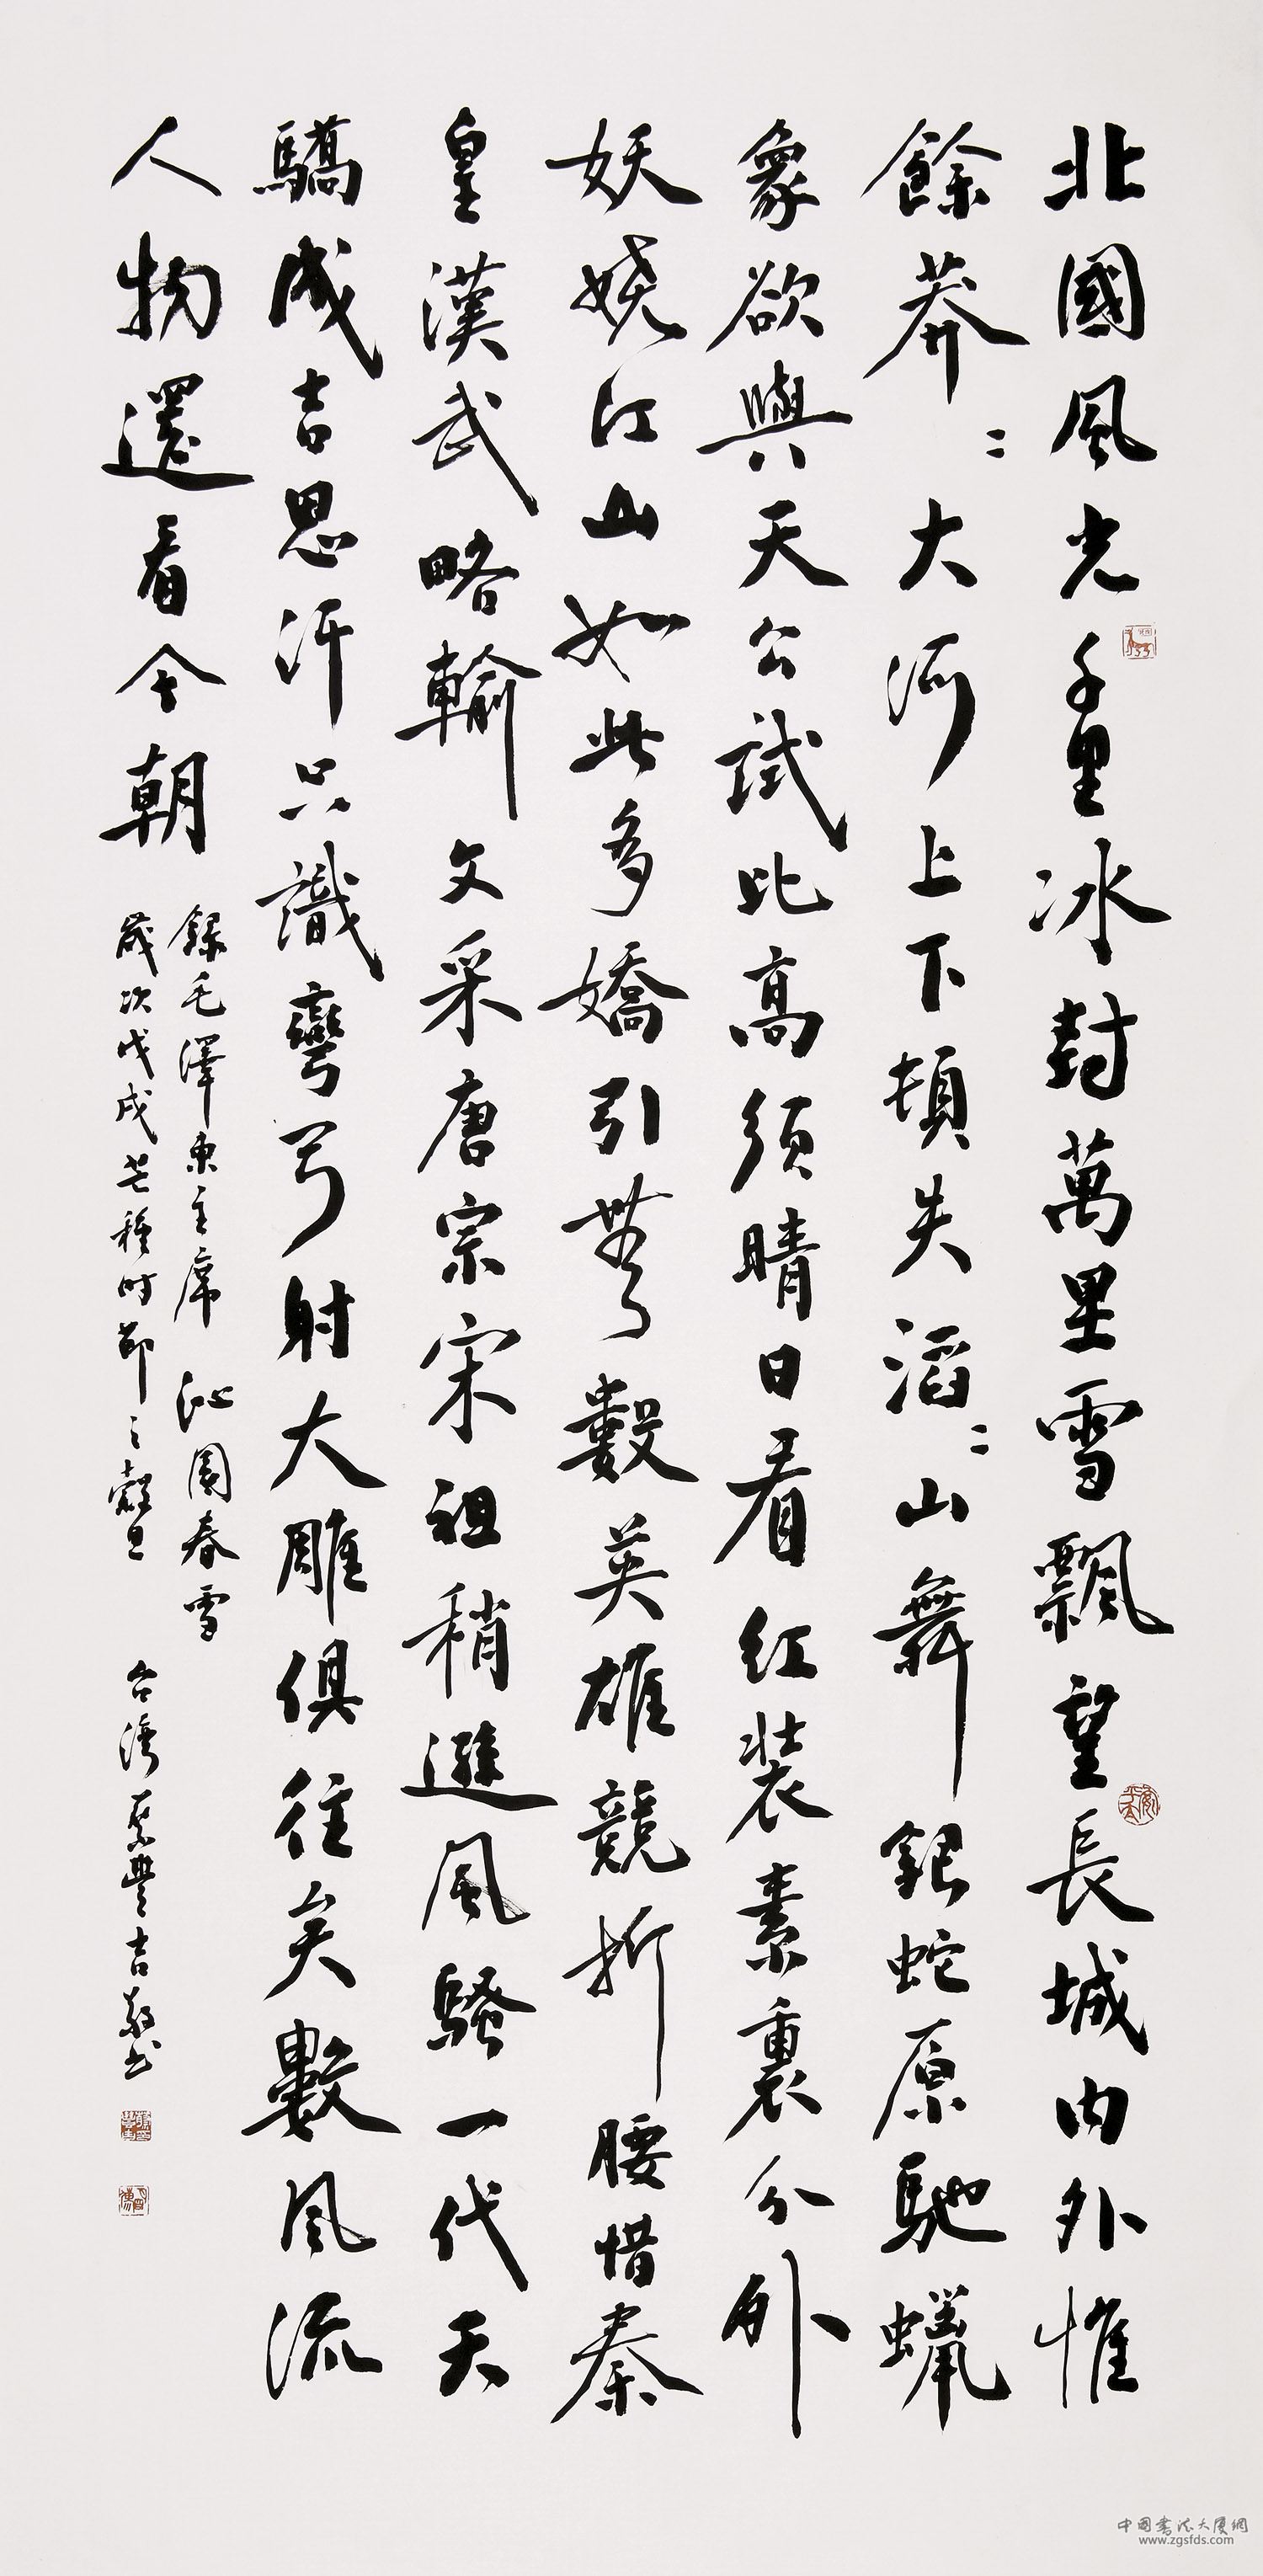 北國風光千里冰封萬里雪飄望長城內外惟
餘莽〻大河上下頓失滔〻山舞銀蛇原馳蠟
象欲與天公試比高須晴日看紅裝素裹分外
妖嬈江山如此多嬌引無數英雄競折腰惜秦
皇漢武略輸文采唐宗宋祖稍遜風騷一代天
驕成吉思汗只識彎弓射大雕俱往矣數風流
人物還看今朝
錄毛澤東主席 沁園春雪
歲次戊戌芒種時節之穀旦 台灣蔡豐吉敬書
中國書法大厦網
www.zgsfds.com